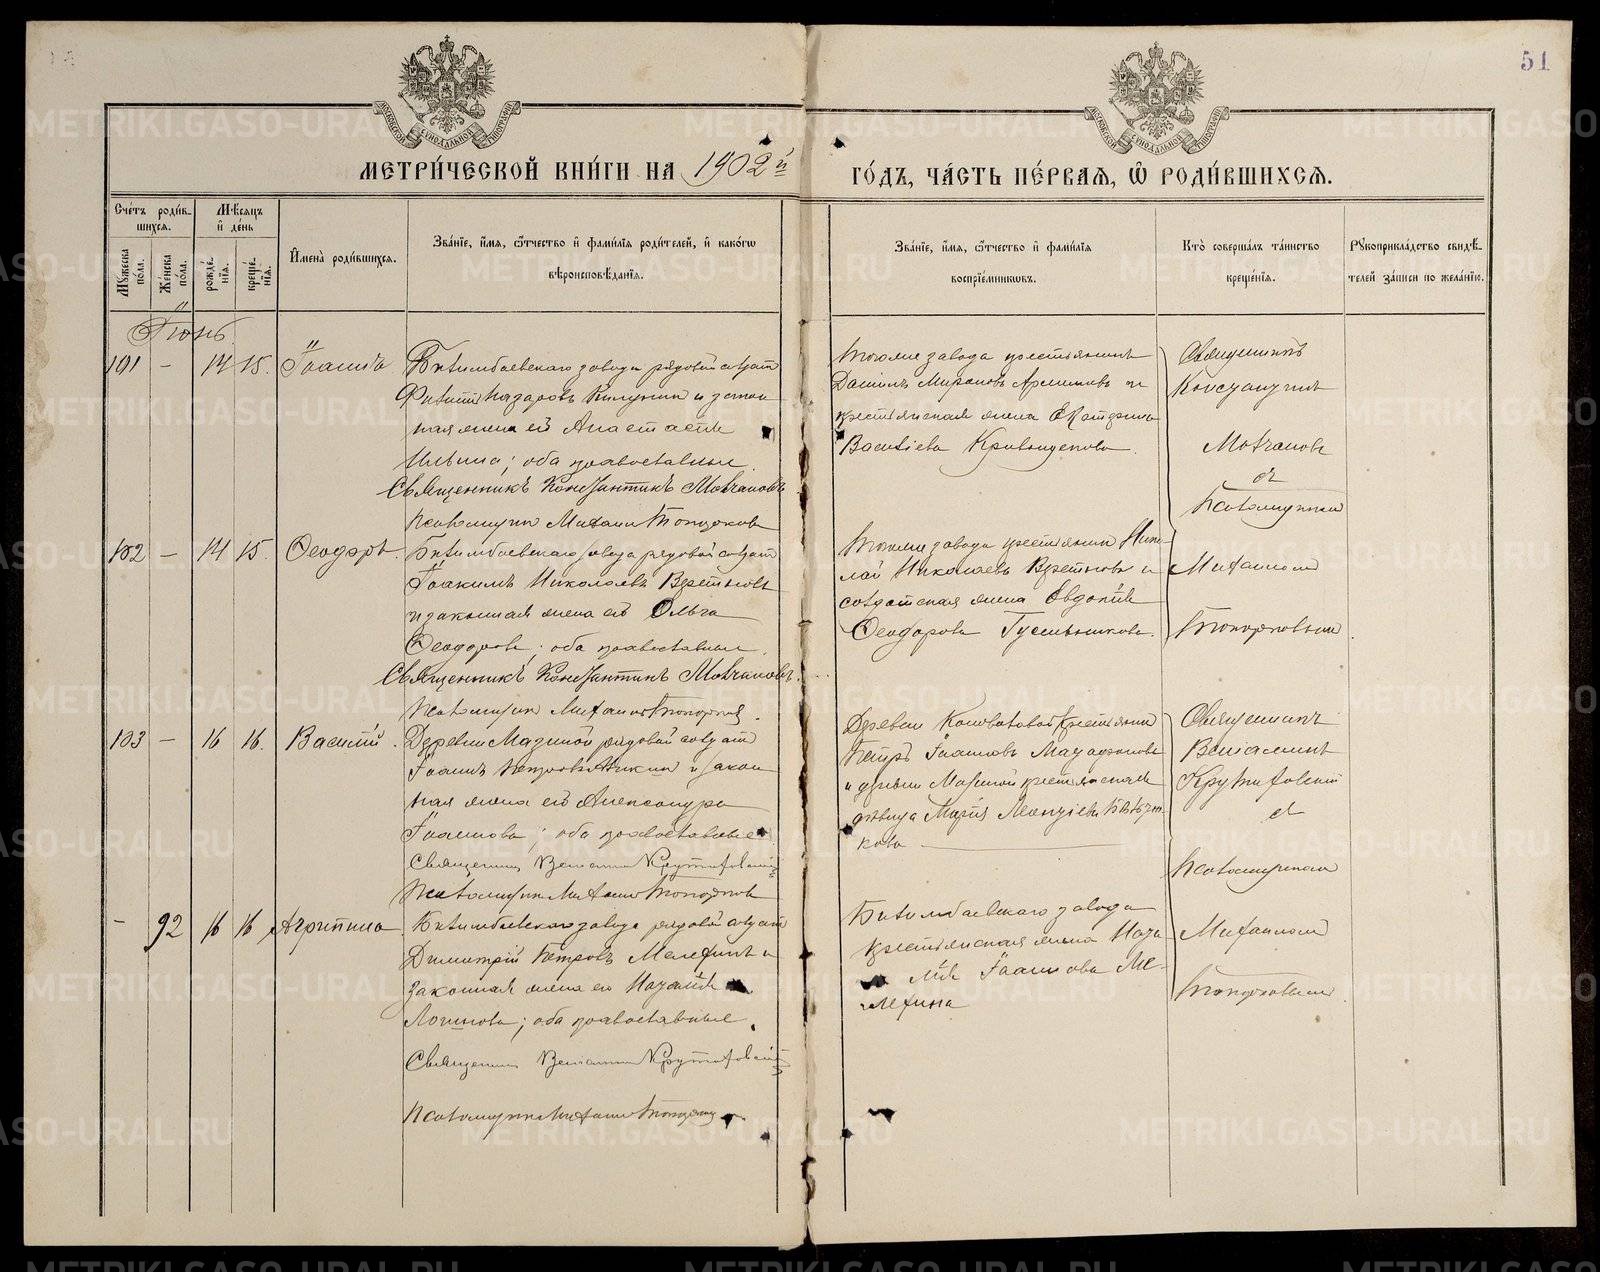 51
МЕТРИ́ЧЕСКОЙ КНИ́ГИ НА 1902й
ГО́ДЪ, ЧА́СТЬ ПЕ́РВАѦ, Ѡ҆ РОДИ́ВШИХСѦ.
Сче́тъ роди́в-
шихся.
Мꙋ́жеска по́ла.
Же́нска по́ла.
Мѣ́сяцъ и де́нь
рожде́нїѧ.
креще́нїѧ.
И҆мена̀ роди́вшихся.
Зва́нїе, и҆́мя, ѻ҆́тчество и҆ фами́лїѧ роди́телей, и҆ како́гѡ
вѣроисповѣ́данїѧ.
Зва́нїе, и҆́мя, ѻ҆́тчество и҆ фами́лїѧ
воспрїе́мникѡвъ.
Кто̀ соверша́лъ та́инство
креще́нїѧ.
Рꙋкоприкла́дство свидѣ́-
телей за́писи по жела́нїю.
Іюнь
101 – 14 15. Іоаннъ
Билимбаевскаго завода рядовой солдат
Назаровъ и закон
ная жена его Анастасія
Ильина; оба православные.
Священникъ Константинъ Молчановъ
Псаломщик Михаил Топорков
Того же завода крестьянинъ
Данилъ Мироновъ и
крестьянская жена Екатерина
Василіева
Священникъ
Константинъ
Молчановъ
съ
Псаломщикомъ
102 – 14 15. Ѳеодоръ.
Билимбаевскаго завода рядовой солдат
Іоакимъ Николаевъ
и законная жена его Ольга
Ѳеодорова; оба православные.
Священникъ Константинъ Молчановъ.
Псаломщик Михаил Топорков.
Того же завода крестьянин Нико-
лай Николаевъ и
солдатская жена Евдокія
Ѳеодорова Гусельникова.
Михаиломъ
Топорковымъ.
103 – 16 16. Василій.
Деревни рядовой солдат
Іоаннъ Петровъ и закон
ная жена его Александра
Іоаннова; оба православные
Священник Веніамин Крутиховский
Псаломщик Михаил Топорков
Деревни Коноваловой крестьянин
Петръ Іоанновъ
и деревни крестьянская
дѣвица Марія
кова
Священникъ
Веніаминъ
Крутиховский
съ
Псаломщикомъ
– 92 16 16 Агрипина
Билимбаевскаго завода рядовой солдат
Димитрій Петровъ Мелехинъ и
законная жена его Наталія
Логинова; оба православные.
Священник Веніамин Крутиховский
Псаломщик Михаил Топорков
Билимбаевскаго завода
крестьянская жена Ната
лія Іоаннова Ме-
лехина
Михаиломъ
Топорковымъ.
METRIKI.GASO-URAL.RU